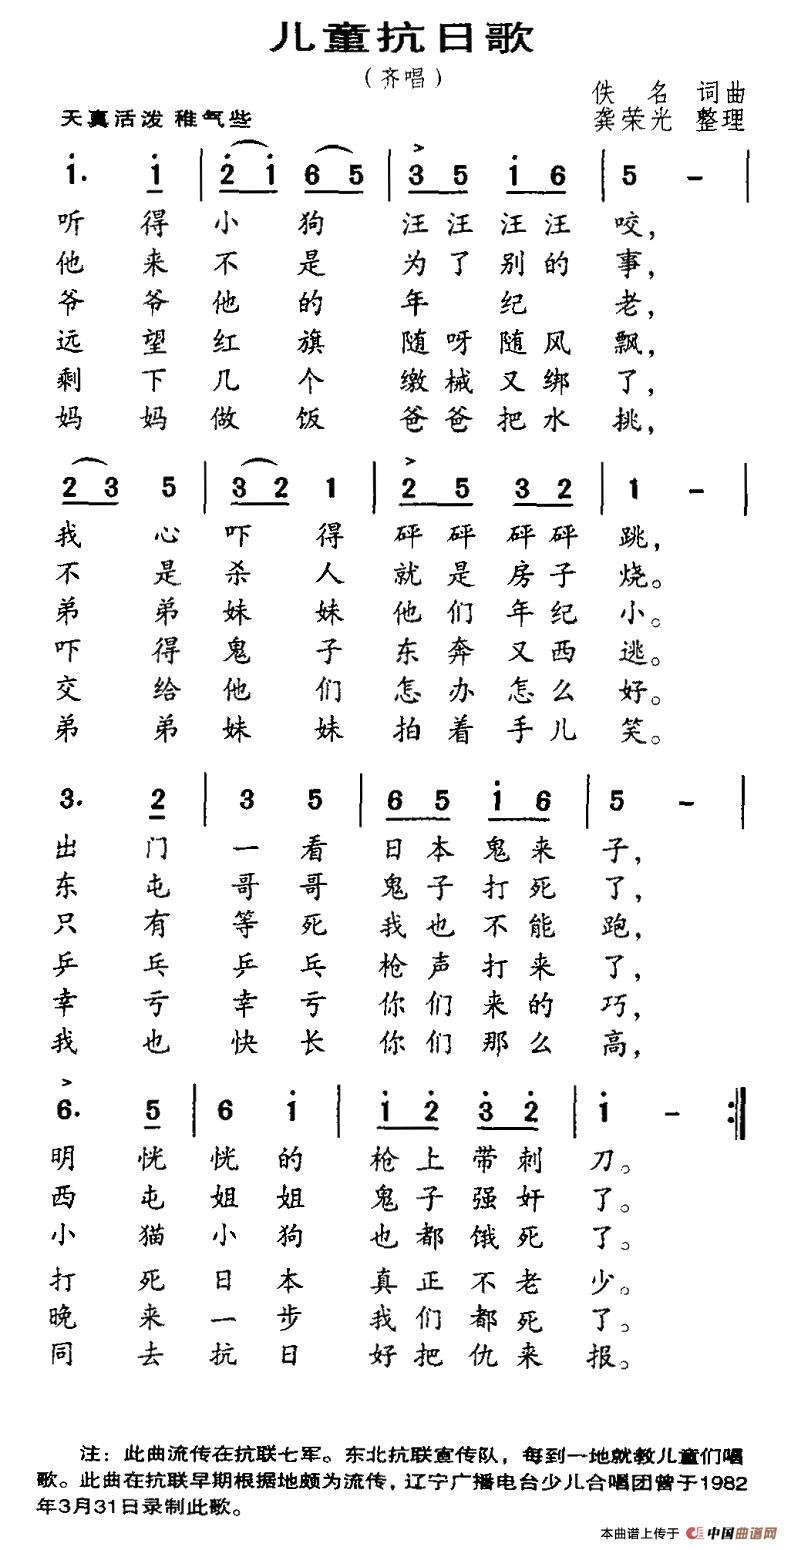 儿童抗日歌
（齐唱）
佚名 词曲
天真活泼 稚气些
龚荣光 整理
1. 1 | 2 1 6 5 | 3 5 1 6 | 5 - |
听得小狗 汪汪汪汪咬，
他来不是 为了别的事，
爷爷他的 年纪老，
远望红旗 随呀随风飘，
剩下几个 缴械又绑了，
妈妈做饭 爸爸把水挑，
2 3 5 | 3 2 1 | 2 5 3 2 | 1 - |
我心吓得 砰砰砰砰跳，
不是杀人 就是房子烧。
弟弟妹妹 他们年纪小。
吓得鬼子 东奔又西逃。
交给他们 怎办怎么好。
弟弟妹妹 拍着手儿笑。
3. 2 | 3 5 | 6 5 1 6 | 5 - |
出门一看 日本鬼来子，
东屯哥哥 鬼子打死了，
只有等死 我也不能跑，
乒乓乒乓 枪声打来了，
幸亏幸亏 你们来的巧，
我也快长 你们那么高，
6. 5 | 6 1 | 1 2 3 2 | 1 - :‖
明恍恍的 枪上带刺刀。
西屯姐姐 鬼子强奸了。
小猫小狗 也都饿死了。
打死日本 真正不老少。
晚来一步 我们都死了。
同去抗日 好把仇来报。
注：此曲流传在抗联七军。东北抗联宣传队，每到一地就教儿童们唱
歌。此曲在抗联早期根据地颇为流传，辽宁广播电台少儿合唱团曾于1982
年3月31日录制此歌。
本曲谱上传于 中国曲谱网